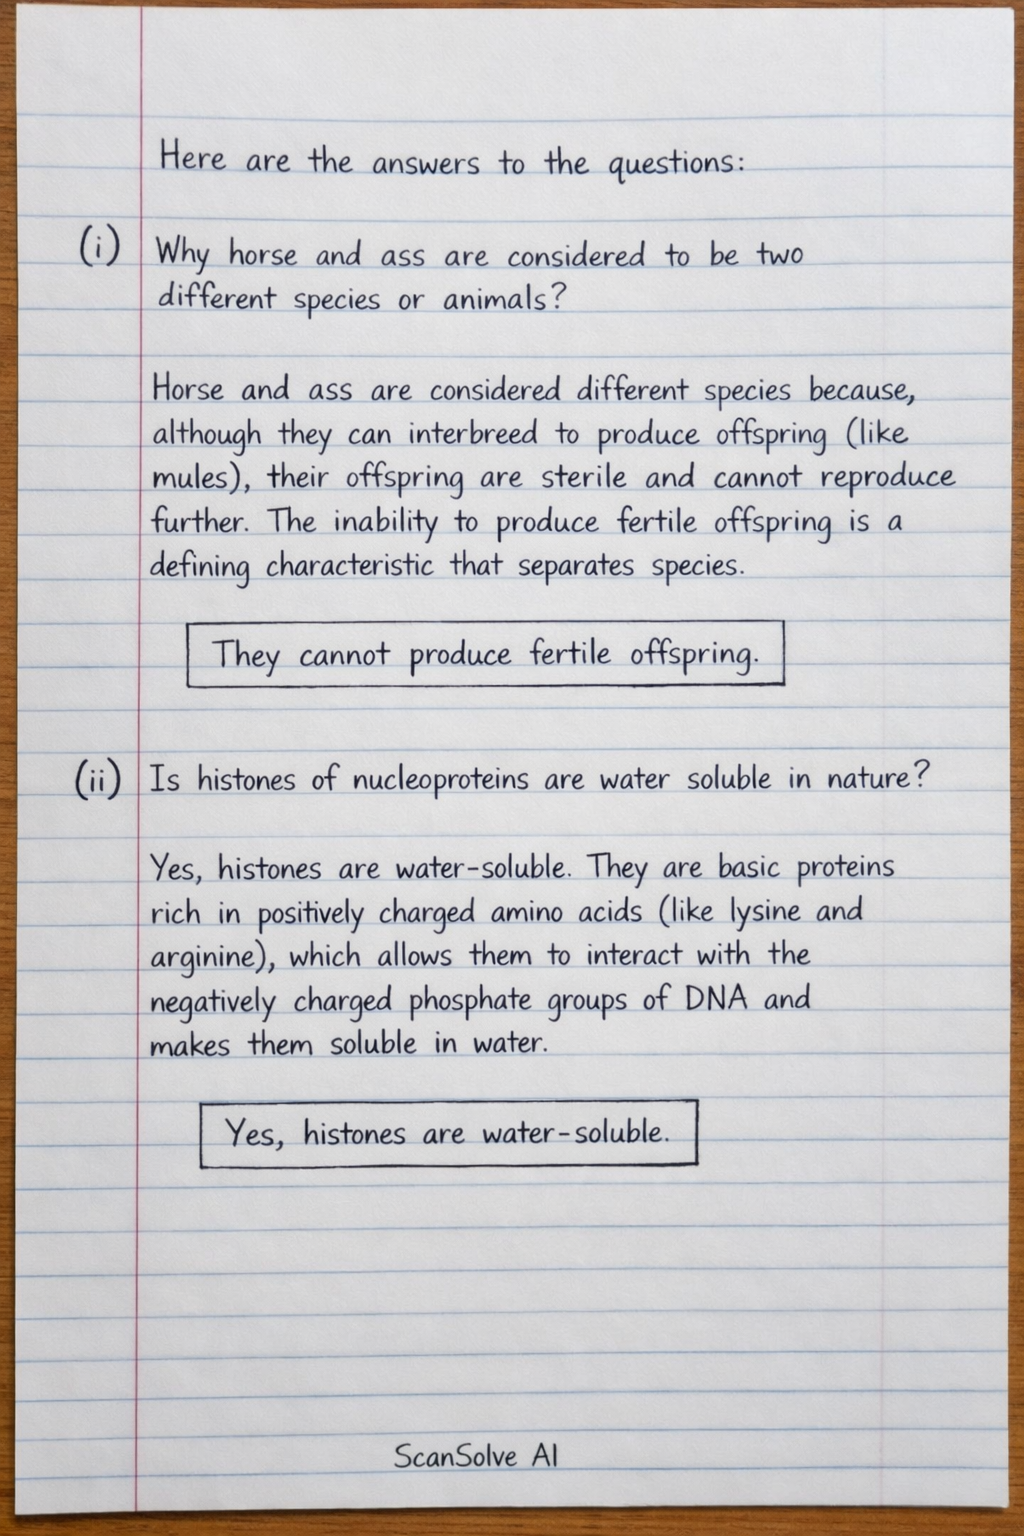 Here are the answers to the questions:
(i) Why horse and ass are considered to be two
different species or animals?
Horse and ass are considered different species because,
although they can interbreed to produce offspring (like
mules), their offspring are sterile and cannot reproduce
further. The inability to produce fertile offspring is a
defining characteristic that separates species.
They cannot produce fertile offspring.
(ii) Is histones of nucleoproteins are water soluble in nature?
Yes, histones are water-soluble. They are basic proteins
rich in positively charged amino acids (like lysine and
arginine), which allows them to interact with the
negatively charged phosphate groups of DNA and
makes them soluble in water.
Yes, histones are water-soluble.
ScanSolve AI